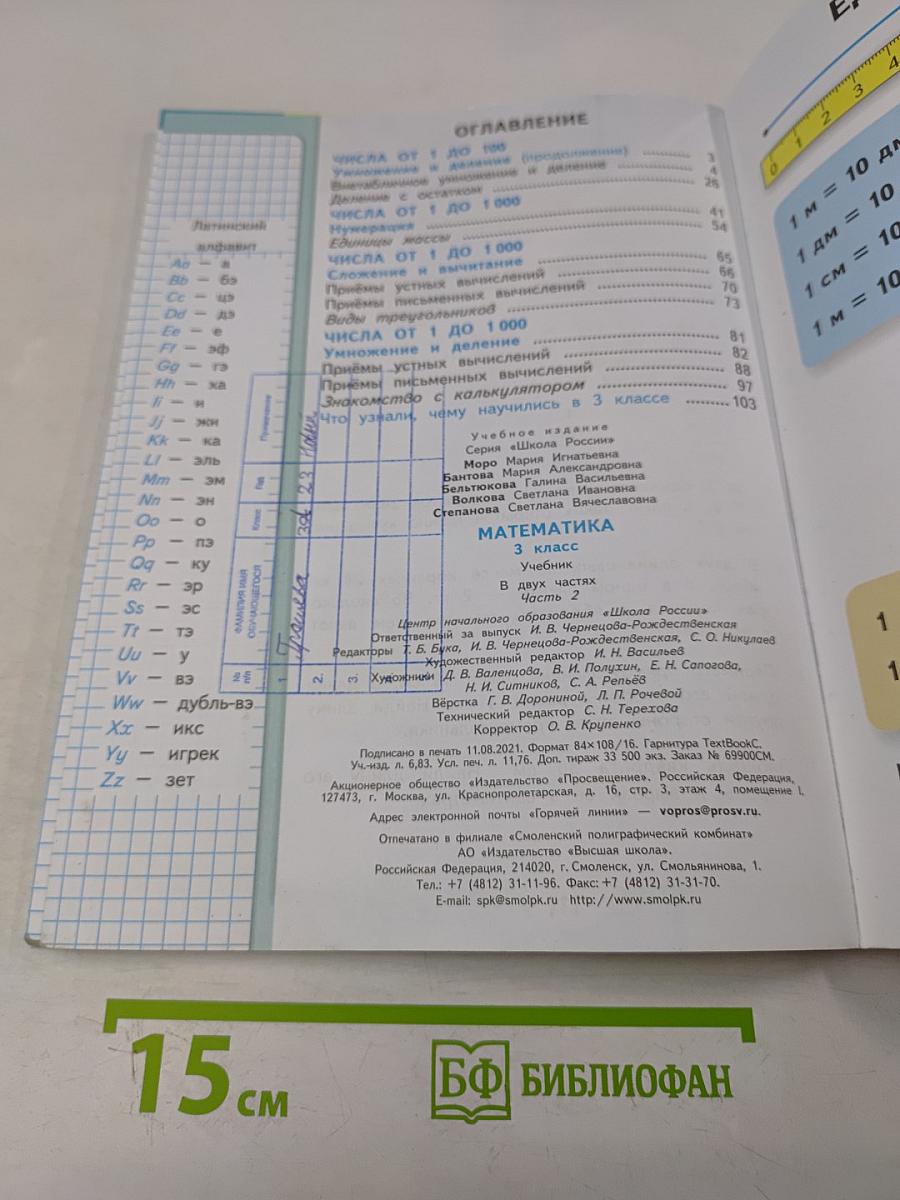 Латинский
алфавит
Aa — а
Bb — бэ
Cc — цэ
Dd — дэ
Ee — е
Ff — эф
Gg — гэ
Hh — ха
Ii — и
Jj — жи
Kk — ка
Ll — эль
Mm — эм
Nn — эн
Oo — о
Pp — пэ
Qq — ку
Rr — эр
Ss — эс
Tt — тэ
Uu — у
Vv — вэ
Ww — дубль-вэ
Xx — икс
Yy — игрек
Zz — зет
ОГЛАВЛЕНИЕ
ЧИСЛА ОТ 1 ДО 100
Умножение и деление (продолжение) 3
Внетабличное умножение и деление 4
Деление с остатком 26
ЧИСЛА ОТ 1 ДО 1 000
Нумерация 41
Единицы массы 54
ЧИСЛА ОТ 1 ДО 1 000
Сложение и вычитание 65
Приёмы устных вычислений 66
Приёмы письменных вычислений 70
Виды треугольников 73
ЧИСЛА ОТ 1 ДО 1 000
Умножение и деление 81
Приёмы устных вычислений 82
Приёмы письменных вычислений 88
Знакомство с калькулятором 97
Что узнали, чему научились в 3 классе 103
№ п/п
ФАМИЛИЯ ИМЯ ОБУЧАЮЩЕГОСЯ
Класс
Год
Примечание
1
23
2.
3.
Учебное издание
Серия «Школа России»
Моро Мария Игнатьевна
Бантова Мария Александровна
Бельтюкова Галина Васильевна
Волкова Светлана Ивановна
Степанова Светлана Вячеславовна
МАТЕМАТИКА
3 класс
Учебник
В двух частях
Часть 2
Центр начального образования «Школа России»
Ответственный за выпуск И. В. Чернецова-Рождественская
Редакторы Т. Б. Бука, И. В. Чернецова-Рождественская, С. О. Никулаев
Художественный редактор И. Н. Васильев
Художники Д. В. Валенцова, В. И. Полухин, Е. Н. Сапогова,
Н. И. Ситников, С. А. Репьёв
Вёрстка Г. В. Дорониной, Л. П. Рочевой
Технический редактор С. Н. Терехова
Корректор О. В. Крупенко
Подписано в печать 11.08.2021. Формат 84×108/16. Гарнитура TextBookC.
Уч.-изд. л. 6,83. Усл. печ. л. 11,76. Доп. тираж 33 500 экз. Заказ № 69900СМ.
Акционерное общество «Издательство «Просвещение». Российская Федерация,
127473, г. Москва, ул. Краснопролетарская, д. 16, стр. 3, этаж 4, помещение I.
Адрес электронной почты «Горячей линии» — vopros@prosv.ru.
Отпечатано в филиале «Смоленский полиграфический комбинат»
АО «Издательство «Высшая школа».
Российская Федерация, 214020, г. Смоленск, ул. Смольянинова, 1.
Тел.: +7 (4812) 31-11-96. Факс: +7 (4812) 31-31-70.
E-mail: spk@smolpk.ru http://www.smolpk.ru
0 1 2 3 4
1 м = 10 дм
1 дм = 10
1 см = 10
1 м = 10
1
1
15 см
БФ БИБЛИОФАН